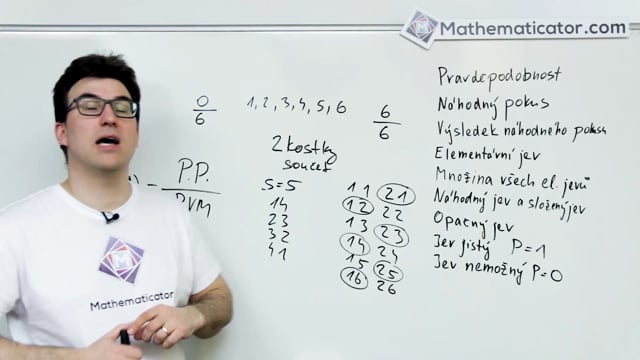 Mathematicator.com
Pravděpodobnost
Náhodný pokus
Výsledek náhodného pokusu
Elementární jev
Množina všech el. jevů
Náhodný jev a složený jev
Opačný jev
Jev jistý P=1
Jev nemožný P=0
0/6
1,2,3,4,5,6
6/6
2 kostky
součet
S=5
14
23
32
41
P.P.
11 21
12 22
13 23
14 24
15 25
16 26
Mathematicator